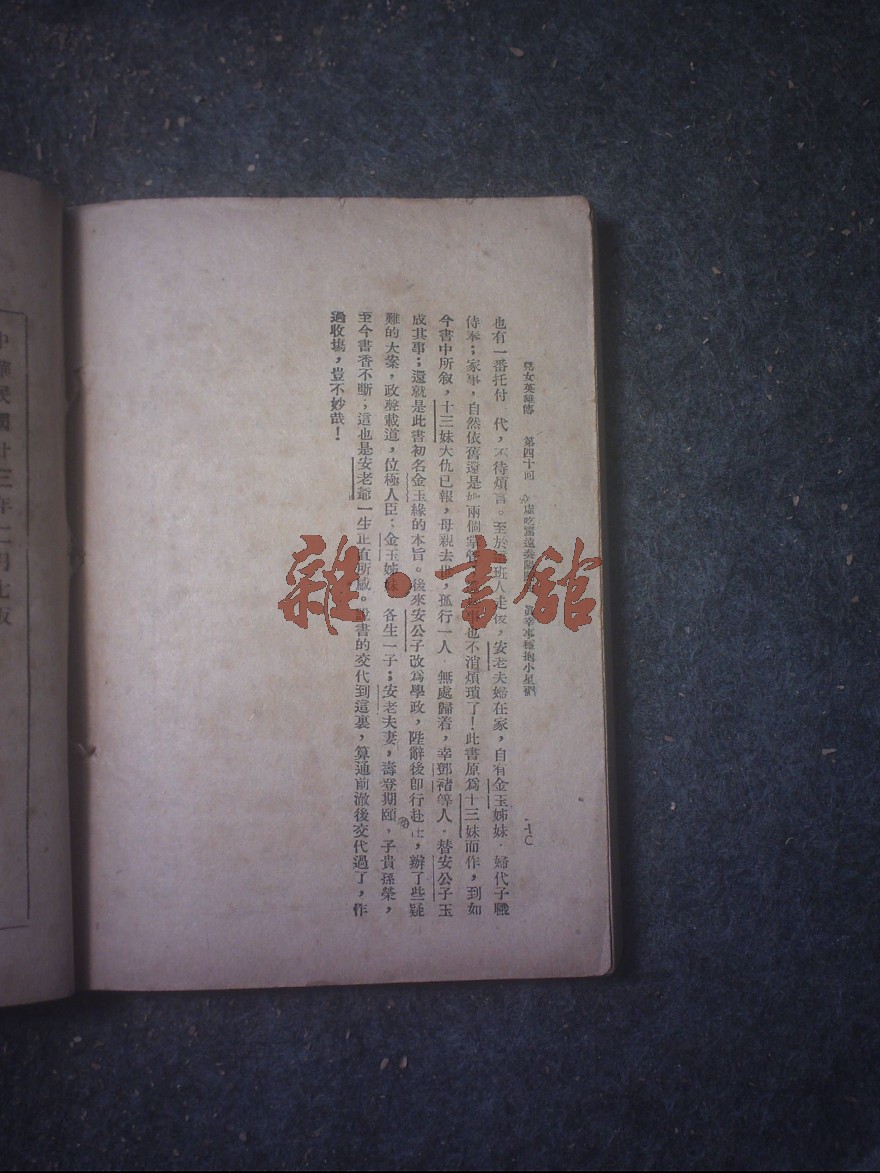 兒女英雄傳　第四十回　虛吃驚遠奏陽　眞幸事穩抱小星裯　一〇
也有一番托付　代，不待煩言。至於　班人走後，安老夫婦在家，自有金玉姊妹，婦代子職
侍奉；家事，自然依舊還是她兩個掌管　也不消煩瑣了！此書原爲十三妹而作，到如
今書中所敘，十三妹大仇已報，母親去世，孤行一人，無處歸着，幸鄧褚等人，替安公子玉
成其事；還就是此書初名金玉緣的本旨。後來安公子改爲學政，陛辭後卽行赴任，辦了些疑
難的大案，政聲載道，位極人臣；金玉姊妹，各生一子；安老夫妻，壽登期頤，子貴孫榮，
至今書香不斷；這也是安老爺一生正直所感。說書的交代到這裏，算通前澈後交代過了，作
過收場，豈不妙哉！
中華民國廿三年二月七版
雜·書館